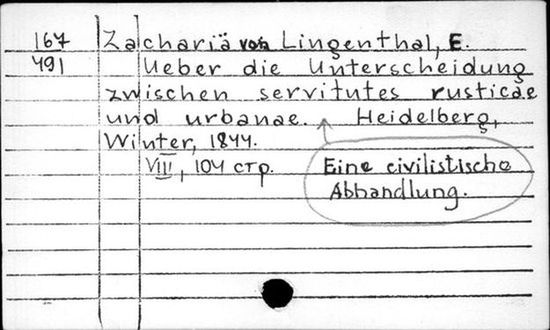 167 Zachariä von Lingenthal, E.
491 Ueber die Unterscheidung
zwischen servitutes rusticae
und urbanae. Heidelberg,
Winter, 1844.
VIII, 104 стр.
Eine civilistische
Abhandlung.